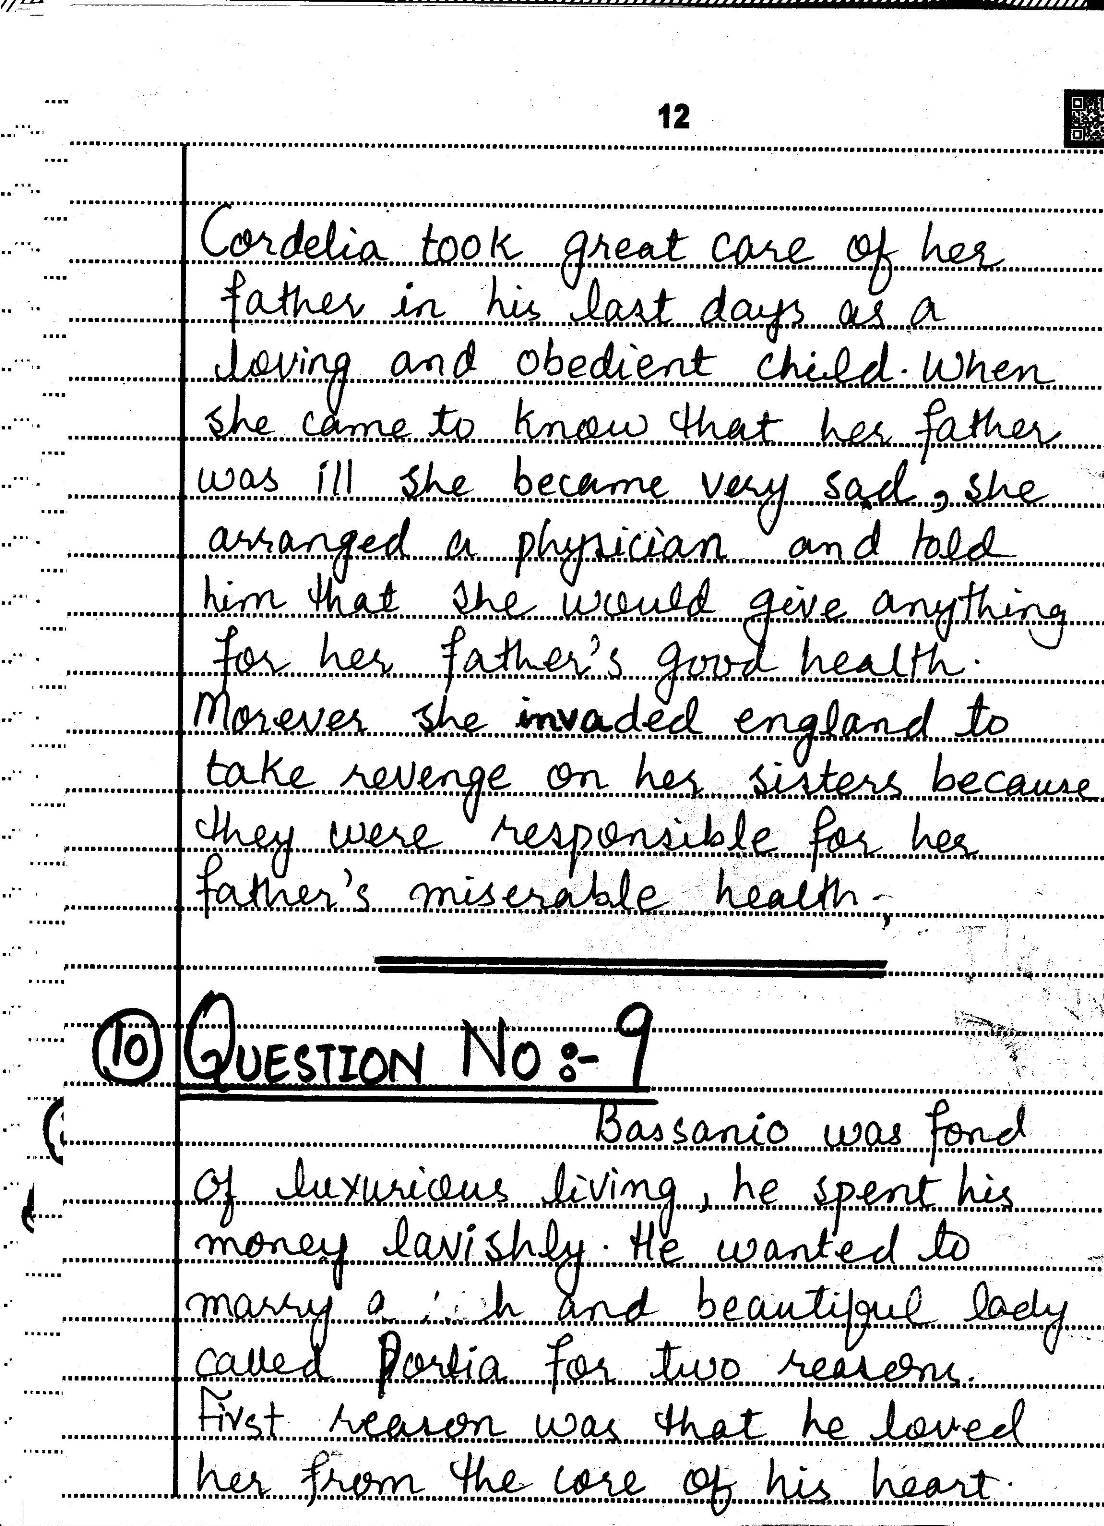 12
Cordelia took great care of her
father in his last days as a
loving and obedient child. When
she came to know that her father
was ill she became very sad, she
arranged a physician and told
him that she would give anything
for her father's good health.
Morever she invaded england to
take revenge on her sisters because
they were responsible for her
father's miserable health.
10 QUESTION NO:- 9
Bassanio was fond
of luxurious living, he spent his
money lavishly. He wanted to
marry a and beautiful lady
called Portia for two reasons.
First reason was that he loved
her from the core of his heart.